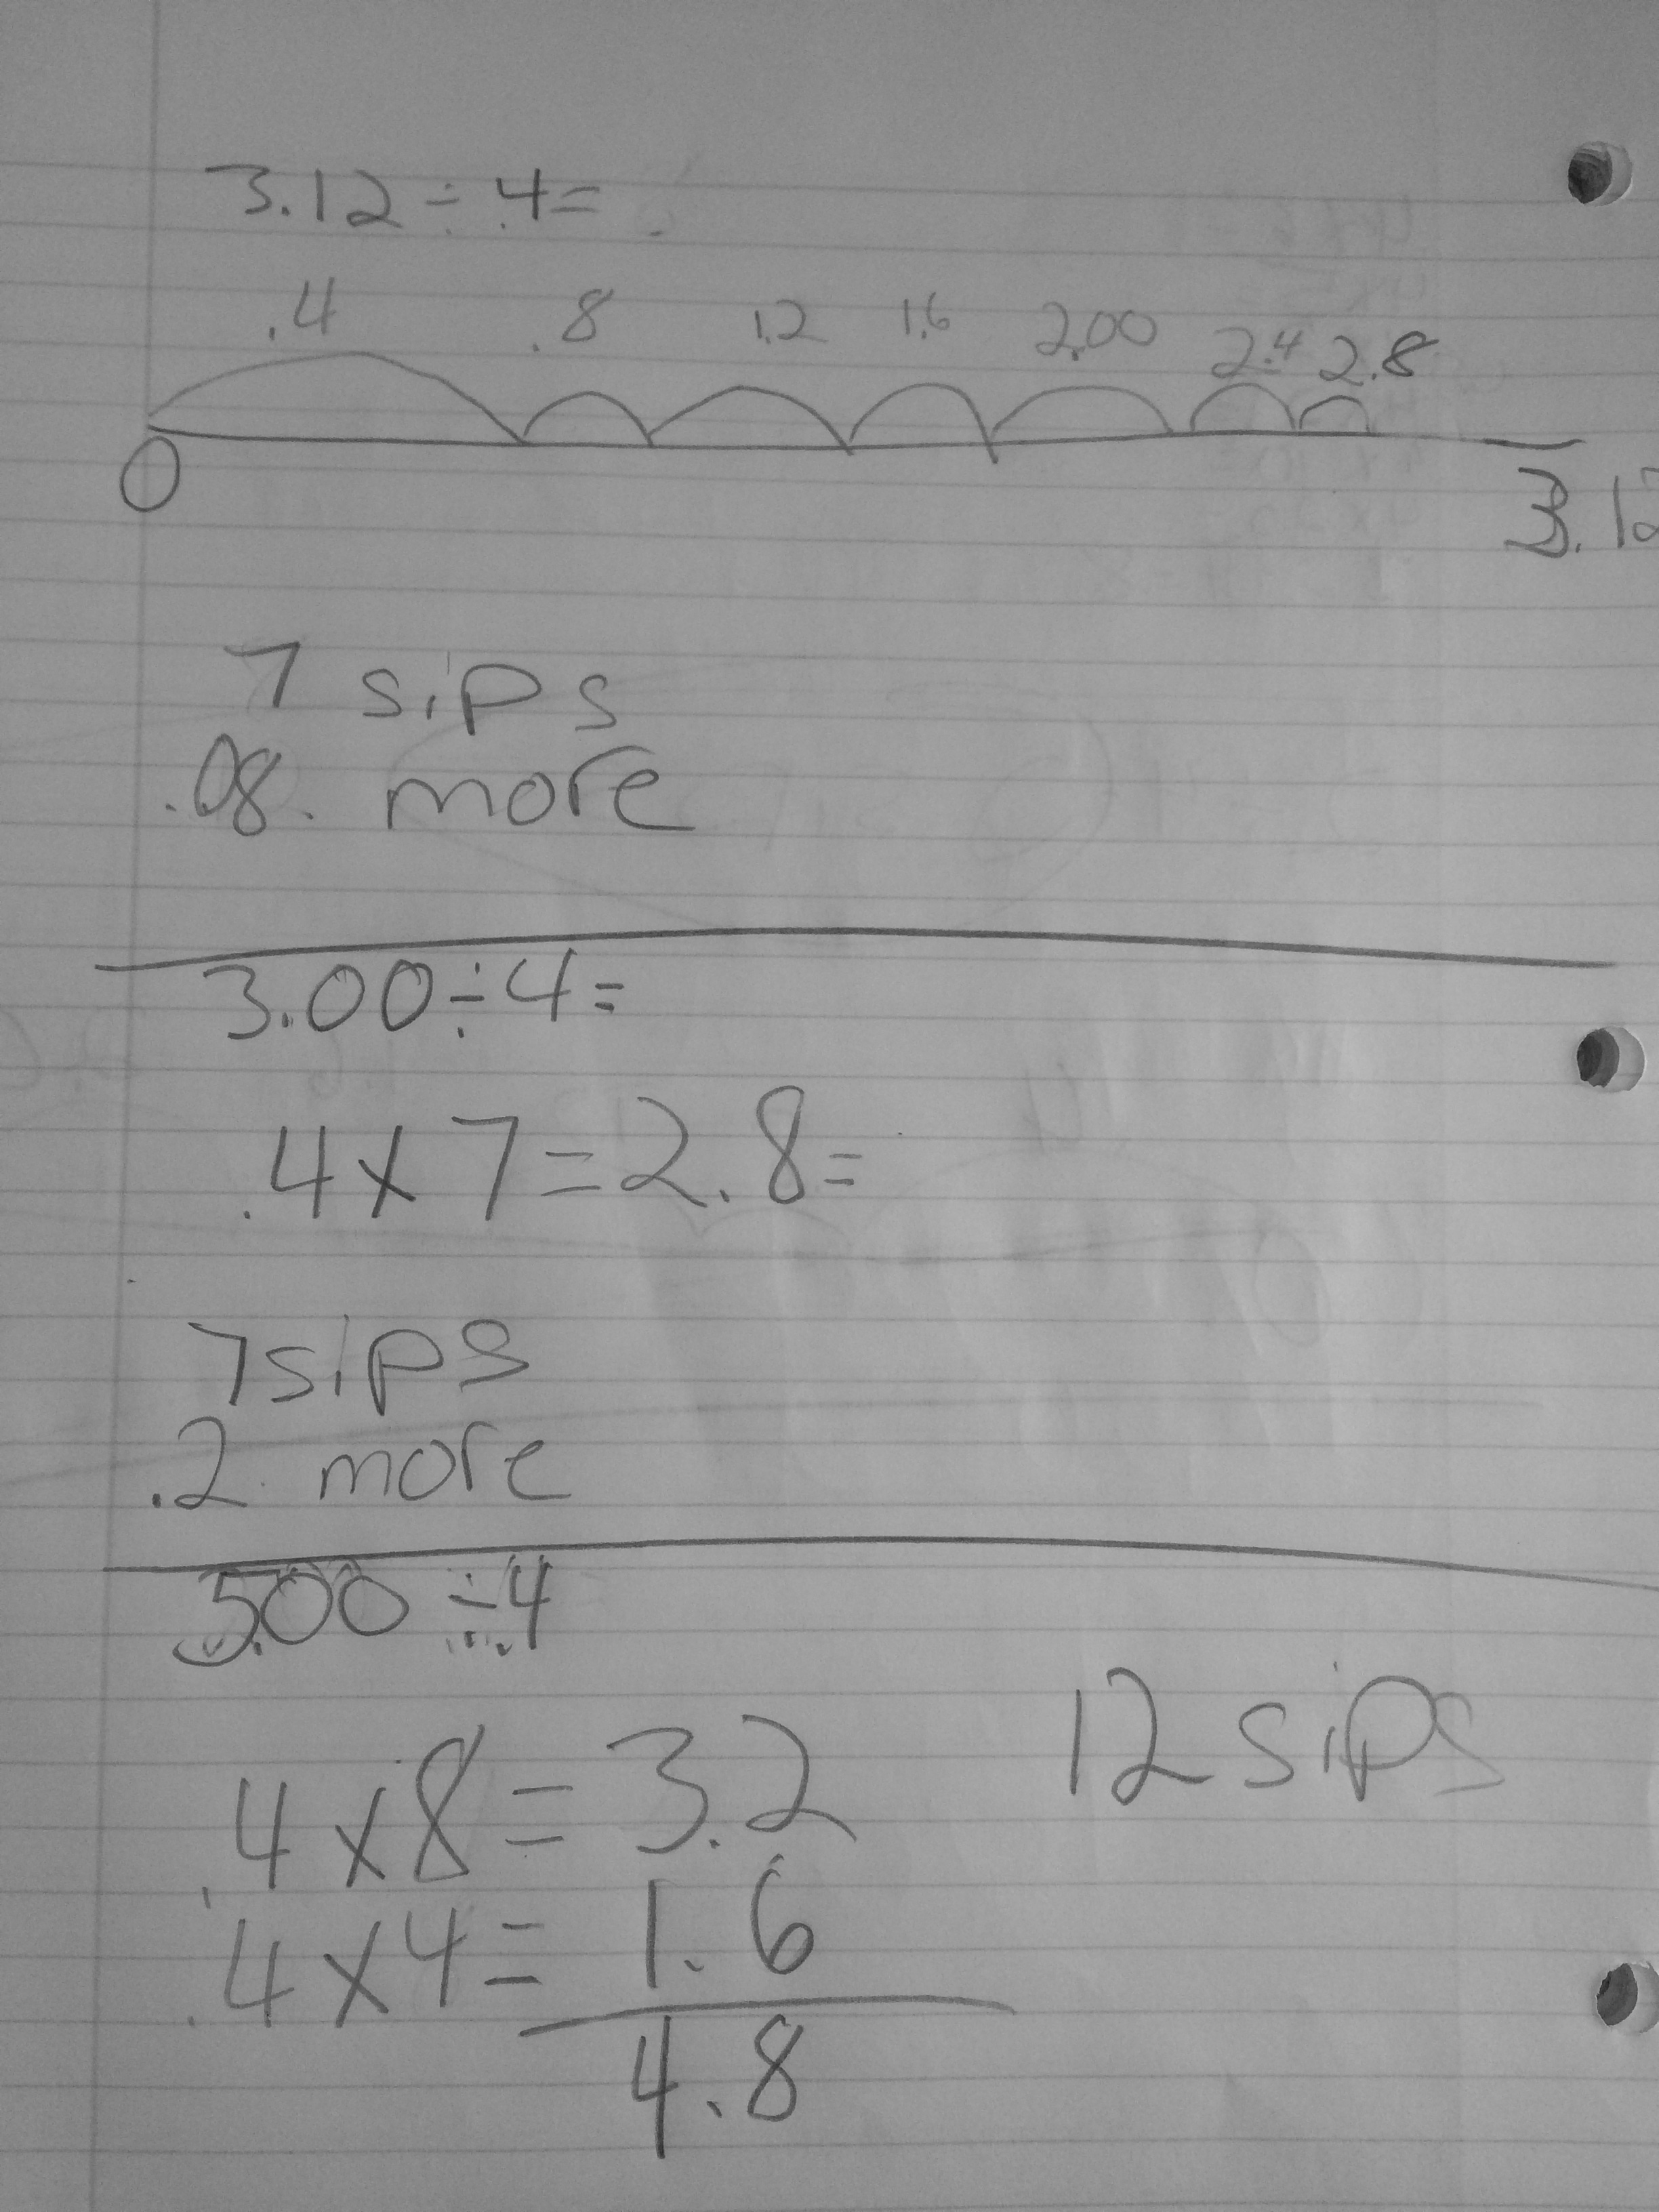 3.12 ÷ .4=
.4 .8 1.2 1.6 2.00 2.4 2.8
0 3.12
7 sips
.08. more
3.00÷.4=
.4x7=2.8=
7sips
.2 more
5.00 ÷.4
.4x8=3.2 12 sips
.4x4=1.6
4.8